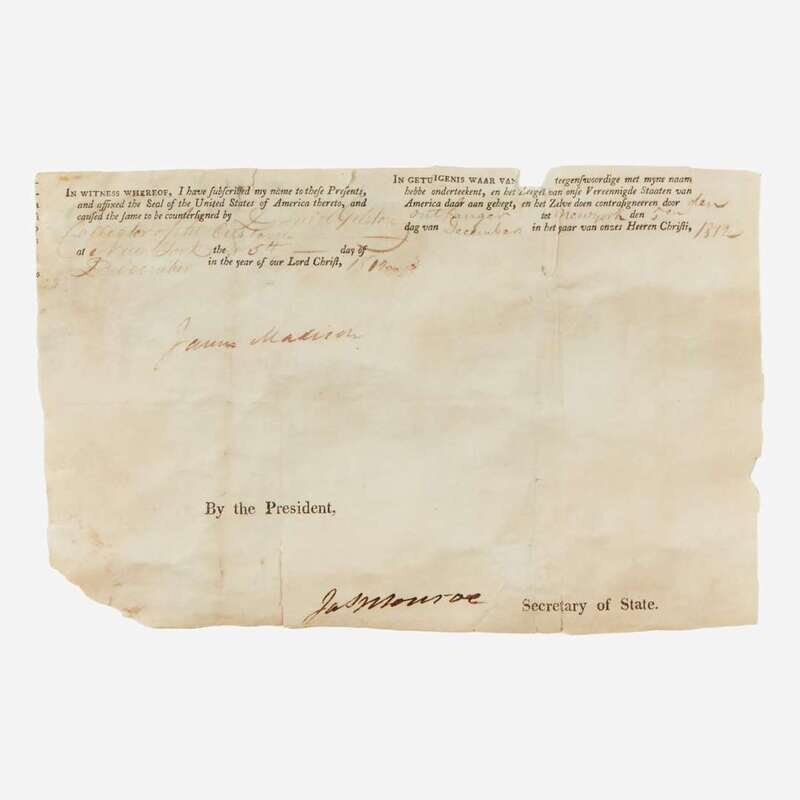 IN WITNESS WHEREOF, I have subscribed my name to these Presents,
and affixed the Seal of the United States of America thereto, and
caused the same to be countersigned by Gelston
Collector of the Customs
at New York the 5th day of
December in the year of our Lord Christ,
IN GETUIGENIS WAAR VAN teegenswoordige met myne naam
hebbe onderteekent, en het Zeegel van onse Vereenigde Staaten van
America daar aan gehegt, en het Zelve doen contrasigneeren door den
ontfanger tot Newyork den 5en
dag van December in het jaar van onzes Heeren Christi, 1812
James Madison
By the President,
Jas Monroe Secretary of State.